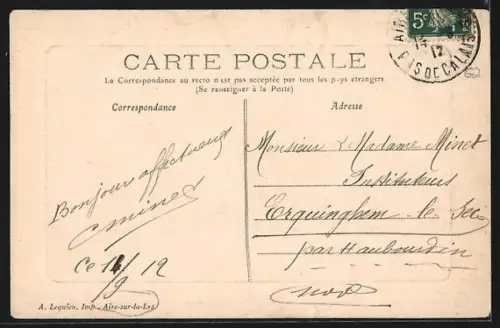 5c
AIR
12
PAS DE CALAIS
CARTE POSTALE
La Correspondance au recto n'est pas acceptée par tous les pays étrangers
(Se renseigner à la Poste)
Correspondance
Adresse
Bonjour affectueux
Ce 14/9 12
Monsieur & Madame Minet
Instituteurs
Erquinghem-le-Sec
par Haubourdin
Nord
A. Lequien, Imp., Aire-sur-la-Lys